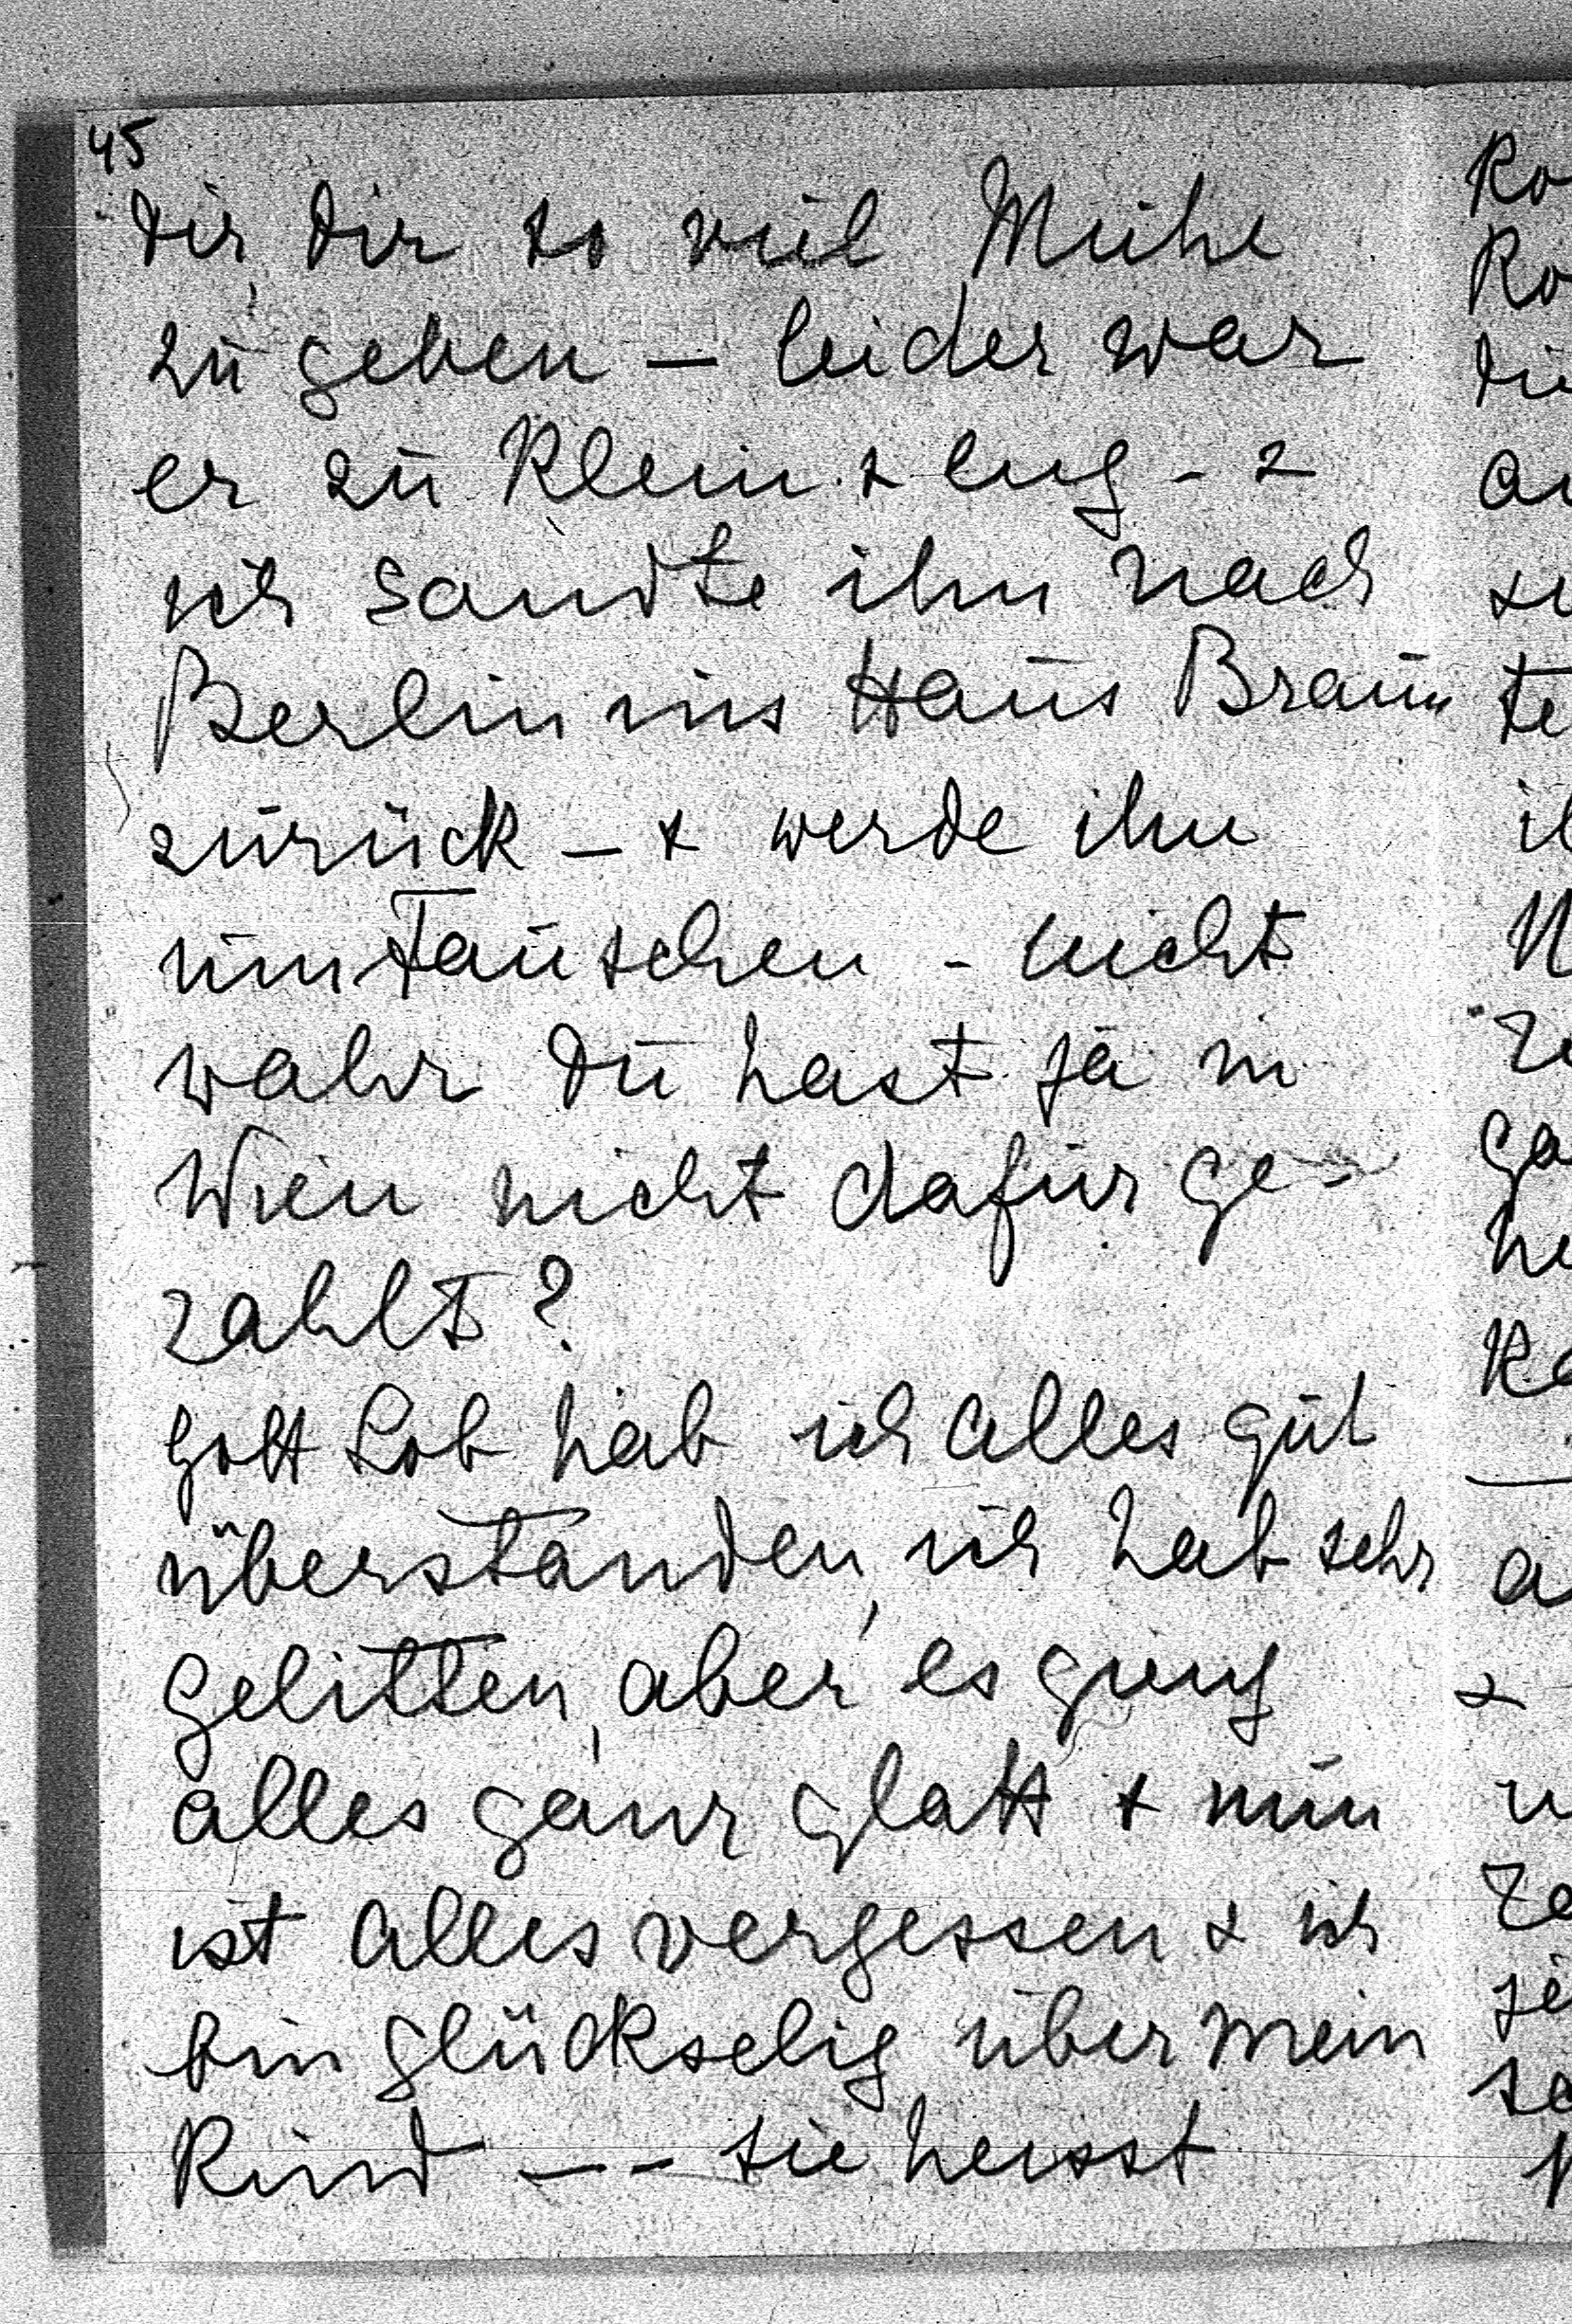 45
dir, dir so viel Mühe
zu geben — leider war
er zu klein & eng - &
ich sandte ihn nach
Berlin ins Haus Braun
zurück — & werde ihn
umtauschen - nicht
wahr du hast ja in
Wien nicht dafür ge-
zahlt?
Gott Lob hab ich alles gut
überstanden, ich hab sehr
gelitten, aber es ging
alles ganz glatt & nun
ist alles vergessen & ich
bin glückselig über mein
Kind — - sie heisst